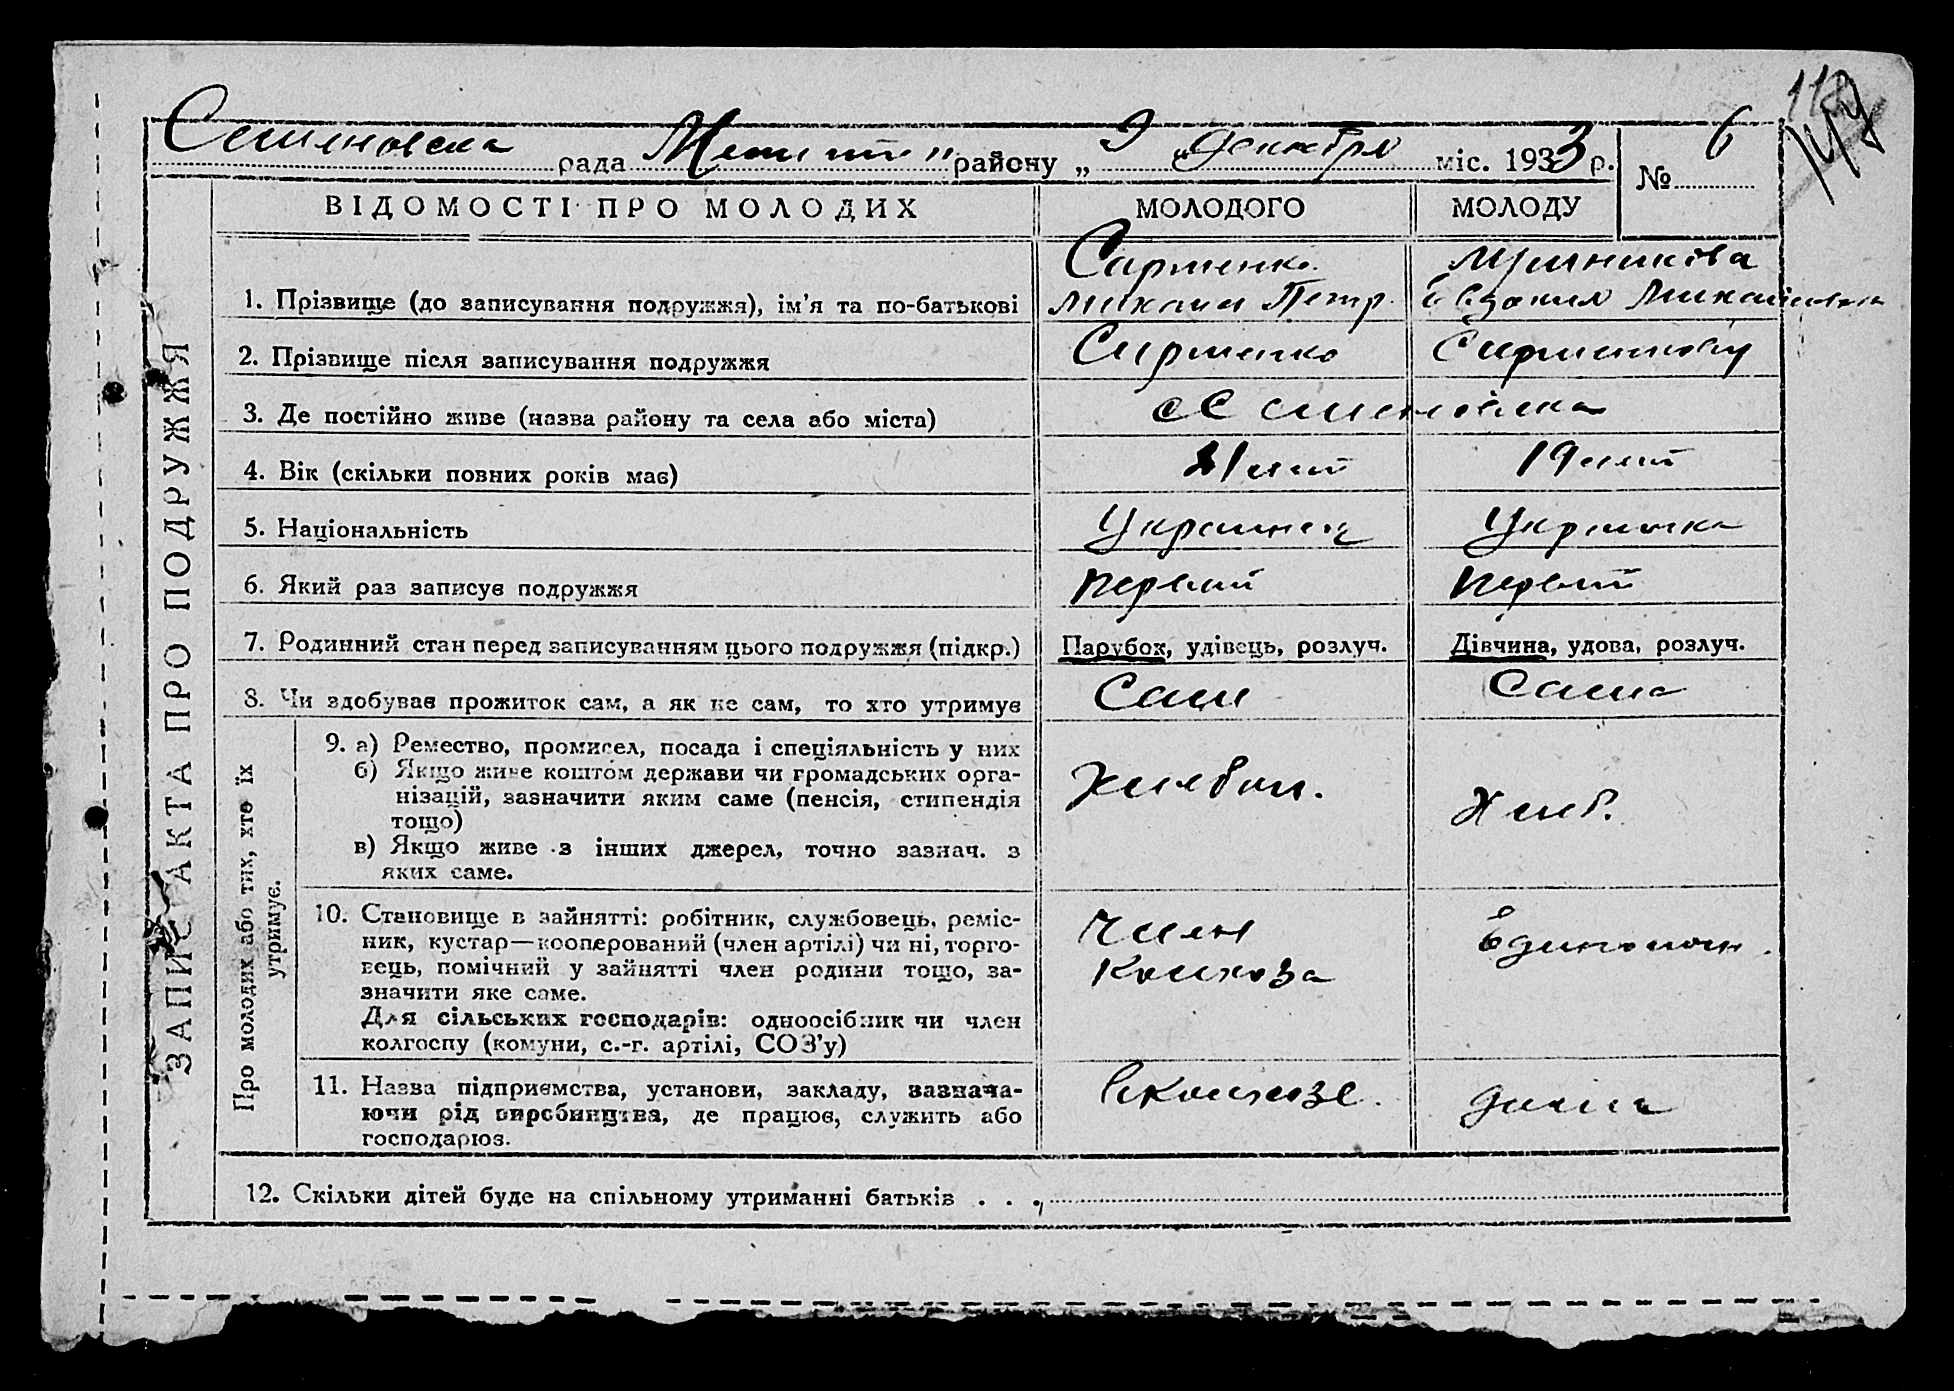 Семеновска рада района „ 9 " декабря міс. 1933 р. № 6
147
ВІДОМОСТІ ПРО МОЛОДИХ МОЛОДОГО МОЛОДУ
1. Прізвище (до записування подружжя), ім'я та по-батькові Михаил Петр.
2. Прізвище після записування подружжя
3. Де постійно живе (назва району та села або міста) с Семеновка
4. Вік (скільки повних років має) 21 лет 19 лет
5. Національність Украинец Украинка
6. Який раз записує подружжя первый первый
7. Родинний стан перед записуванням цього подружжя (підкр.) Парубок, удівець, розлуч. Дівчина, удова, розлуч.
8. Чи здобував прожиток сам, а як не сам, то хто утримує Сам Сама
9. а) Ремество, промисел, посада і спеціяльність у них
б) Якщо живе коштом держави чи громадських орга-
нізацій, зазначити яким саме (пенсія, стипендія
тощо)
в) Якщо живе з інших джерел, точно зазнач. з
яких саме.
Хлебоп. Хлеб.
10. Становище в зайнятті: робітник, службовець, реміс-
ник, кустар—кооперований (член артілі) чи ні, торго-
вець, помічний у зайнятті член родини тощо, за-
значити яке саме.
Для сільських господарів: одноосібник чи член
колгоспу (комуни, с.-г. артілі, СОЗ'у)
Член
Колхоза
Единолич.
11. Назва підприємства, установи, закладу, зазнача-
ючи рід виробництва, де працює, служить або
господарює.
в колхозе. дома
12. Скільки дітей буде на спільному утриманні батьків . . .
ЗАПИС АКТА ПРО ПОДРУЖЖЯ
Про молодих або тих, хто їх
утримує.